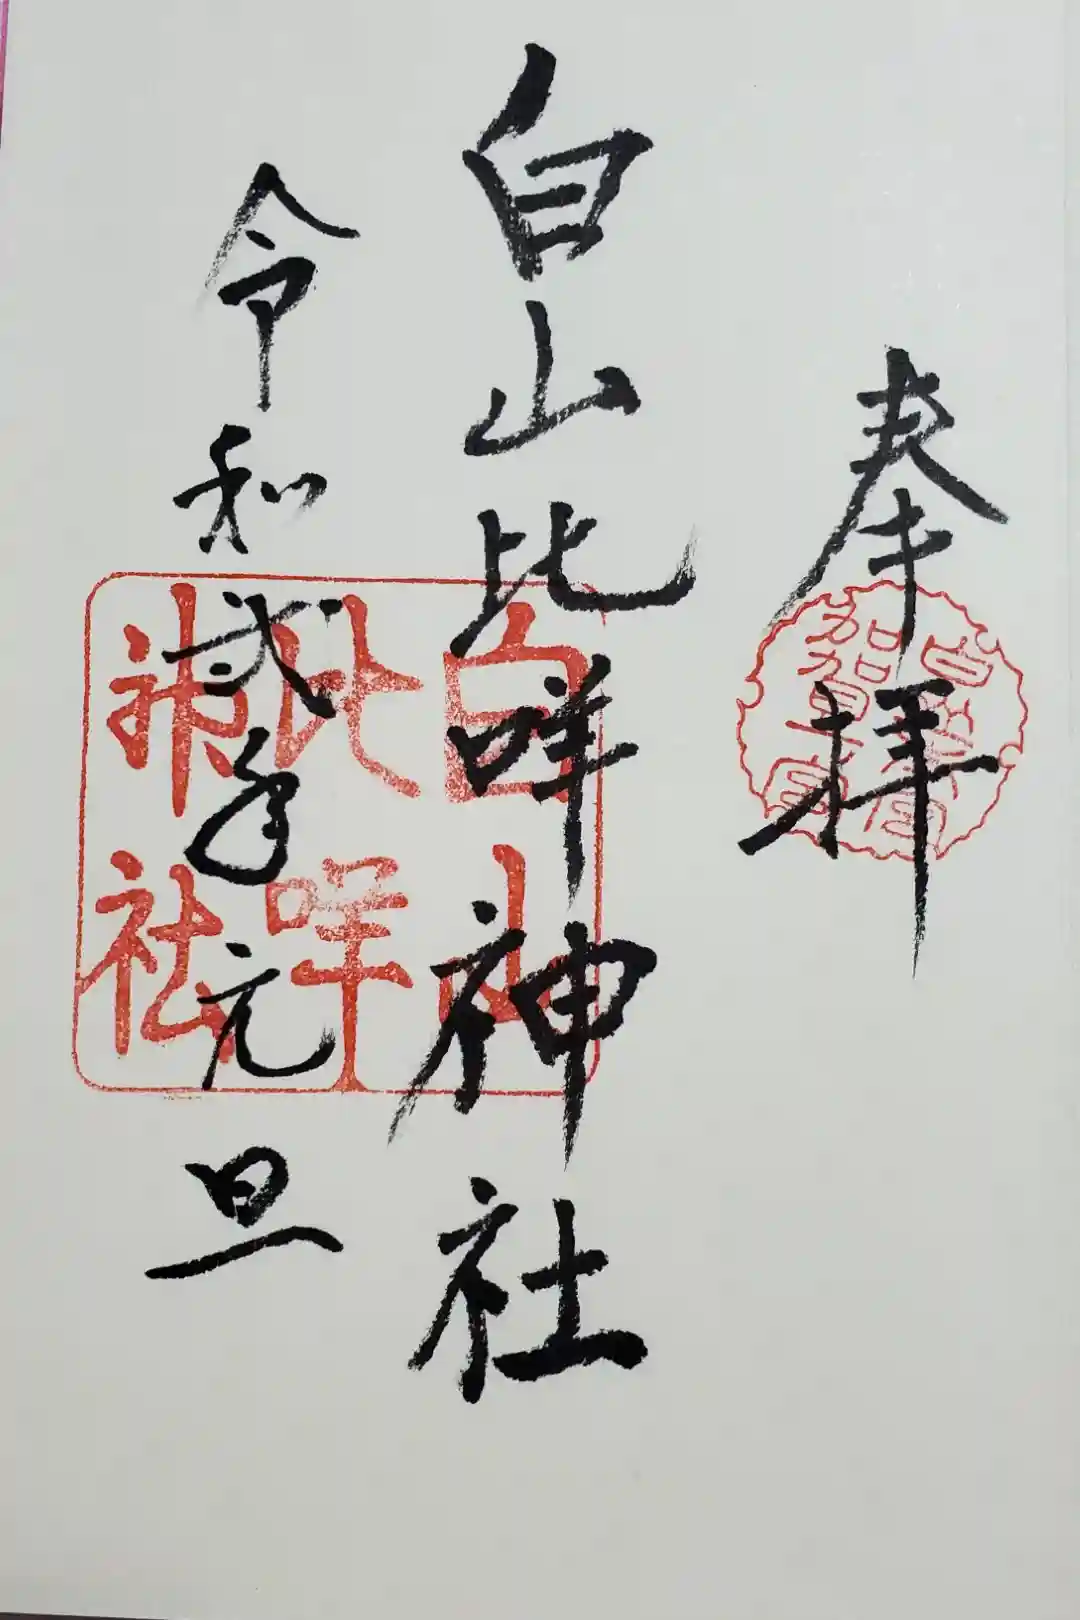 奉拝
加賀一宮
白山比咩神社
白山
比咩
神社
令和弐年元旦